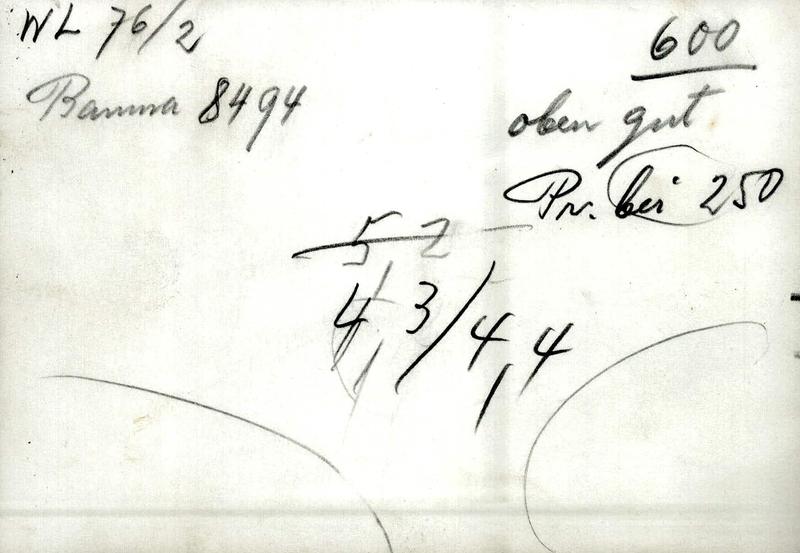 WL 76/2
600
Bamma 8494
oben gut
Pr. bei 250
5,2
4,3/4,4